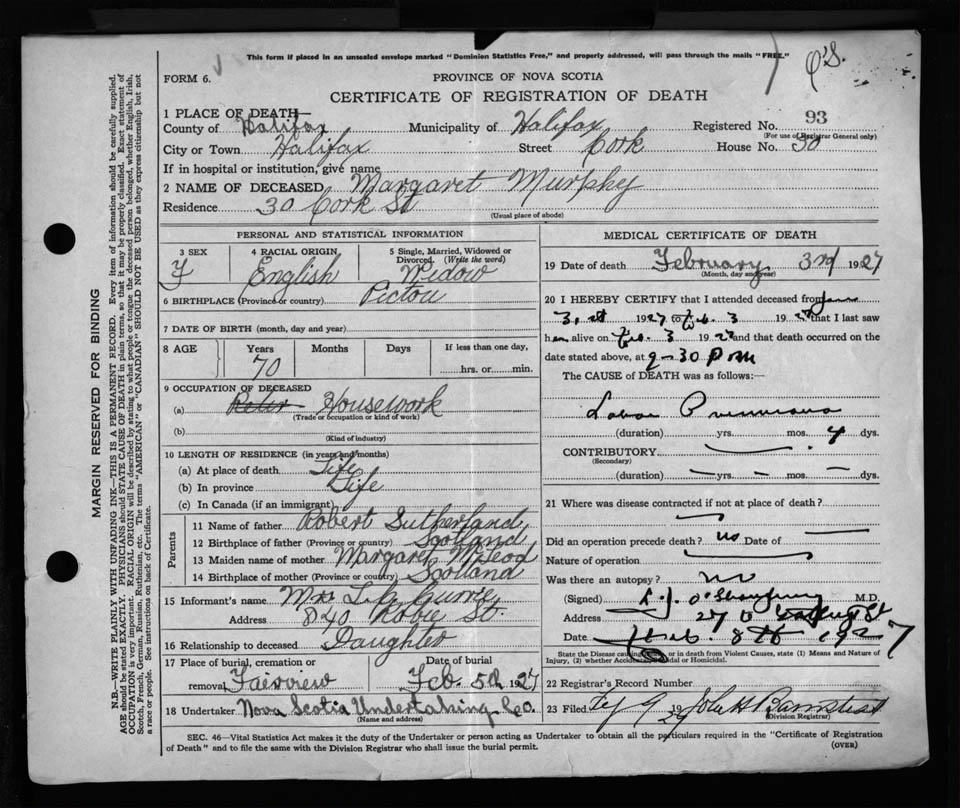 This form if placed in an unsealed envelope marked "Dominion Statistics Free," and properly addressed, will pass through the mails "FREE."
FORM 6.
PROVINCE OF NOVA SCOTIA
CERTIFICATE OF REGISTRATION OF DEATH
1 PLACE OF DEATH—
County of Halifax Municipality of Halifax Registered No. 93
(For use of Registrar General only)
City or Town Halifax Street Cork House No. 30
If in hospital or institution, give name
2 NAME OF DECEASED Margaret Murphy
Residence 30 Cork St
(Usual place of abode)
MARGIN RESERVED FOR BINDING
N.B.—WRITE PLAINLY WITH UNFADING INK—THIS IS A PERMANENT RECORD. Every item of information should be carefully supplied.
AGE should be stated EXACTLY. PHYSICIANS should STATE CAUSE OF DEATH in plain terms, so that it may be properly classified. Exact statement of
OCCUPATION is very important. RACIAL ORIGIN will be described by stating to what people or tongue the deceased person belonged, whether English, Irish,
Scotch, French, German, Russian, Ruthenian, etc. The terms "AMERICAN" or "CANADIAN" SHOULD NOT BE USED as they express citizenship but not
a race or people. See instructions on back of Certificate.
PERSONAL AND STATISTICAL INFORMATION
3 SEX 4 RACIAL ORIGIN 5 Single, Married, Widowed or Divorced. (Write the word)
F English Widow
6 BIRTHPLACE (Province or country) Pictou
7 DATE OF BIRTH (month, day and year)
8 AGE Years Months Days If less than one day,
70 hrs. or min.
9 OCCUPATION OF DECEASED
(a) Housework
(Trade or occupation or kind of work)
(b)
(Kind of industry)
10 LENGTH OF RESIDENCE (in years and months)
(a) At place of death Life
(b) In province Life
(c) In Canada (if an immigrant)
Parents
11 Name of father Robert Sutherland
12 Birthplace of father (Province or country) Scotland
13 Maiden name of mother Margaret McLeod
14 Birthplace of mother (Province or country) Scotland
15 Informant's name Mrs
Address 840 Robie St.
16 Relationship to deceased Daughter
17 Place of burial, cremation or Date of burial
removal Fairview Feb. 5th 1927
18 Undertaker Nova Scotia Undertaking Co.
(Name and address)
MEDICAL CERTIFICATE OF DEATH
19 Date of death February 3rd 1927
(Month, day and year)
20 I HEREBY CERTIFY that I attended deceased from Jan
31st 1927 to Feb. 3 1927 that I last saw
her alive on Feb. 3 1927 and that death occurred on the
date stated above, at 9-30 P.m
The CAUSE of DEATH was as follows:
Lobar Pneumonia
(duration) yrs. mos. 4 dys.
CONTRIBUTORY
(Secondary)
(duration) — yrs. — mos. — dys.
21 Where was disease contracted if not at place of death?
Did an operation precede death? no Date of
Nature of operation
Was there an autopsy? no
(Signed) M.D.
Address St
Date Feb. 8th 1927
State the Disease causing or in death from Violent Causes, state (1) Means and Nature of
Injury, (2) whether Accidental or Homicidal.
22 Registrar's Record Number
23 Filed 9 19
(Division Registrar)
SEC. 46—Vital Statistics Act makes it the duty of the Undertaker or person acting as Undertaker to obtain all the particulars required in the "Certificate of Registration
of Death" and to file the same with the Division Registrar who shall issue the burial permit. (OVER)